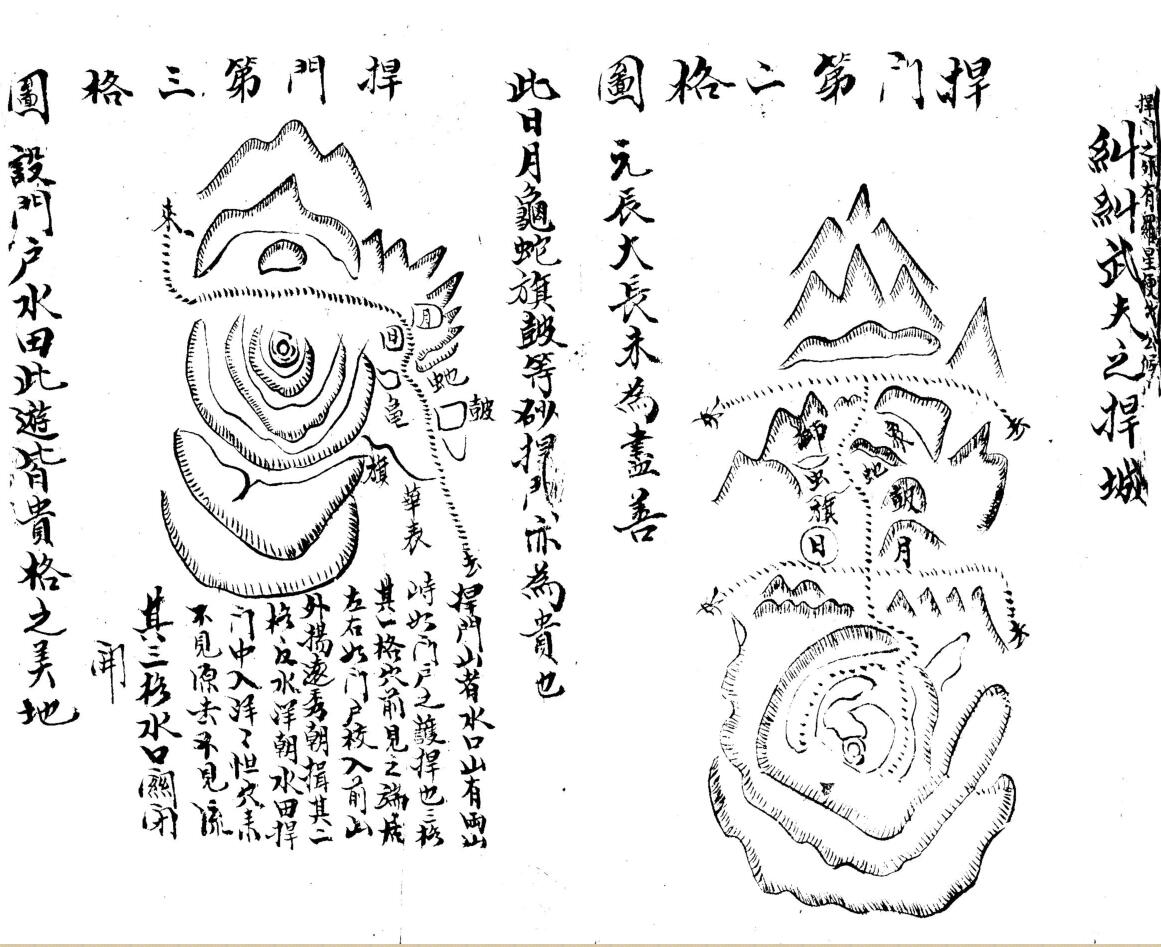 捍门之外有羅星便
糾糾武夫之捍城
捍门第二格圖
元辰大長未為盡善
獅
虫
旗
日
地
月
去
此日月龜蛇旗鼓等砂捍门亦為貴也
捍門第三格圖
來
月
蛇
鼓
龟
旗
華表
去
設門户水田此遊皆貴格之美地
捍門山者水口山有兩山
峙如门户之護捍也三格
其一格穴前見之端居
左右如门户校入前山
外揚遠秀朝揖其二
格反水洋朝水田捍
门中入洋々怛穴来
不見源去不見流
其三格水口關闭